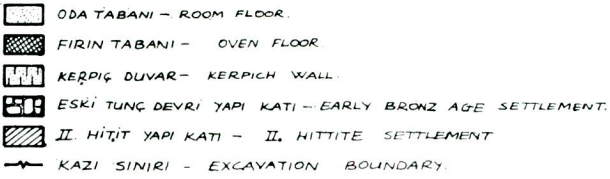 ODA TABANI - ROOM FLOOR.
FIRIN TABANI - OVEN FLOOR
KERPİÇ DUVAR - KERPICH WALL.
ESKİ TUNÇ DEVRİ YAPI KATI - EARLY BRONZ AGE SETTLEMENT.
II. HİTİT YAPI KATI - II. HITTITE SETTLEMENT
KAZI SINIRI - EXCAVATION BOUNDARY.